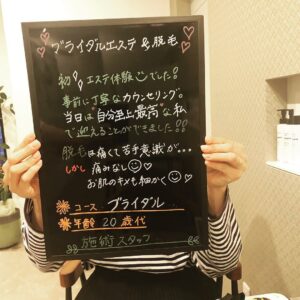 ブライダルエステ & 脱毛
初!! エステ体験でした!!
事前に丁寧なカウンセリング。
当日は自分至上最高な私
で迎えることができました!!
脱毛は痛くて苦手意識が…
しかし 痛みなし
お肌のキメも細かく
コース ブライダル
年齢 20 歳代
施術スタッフ